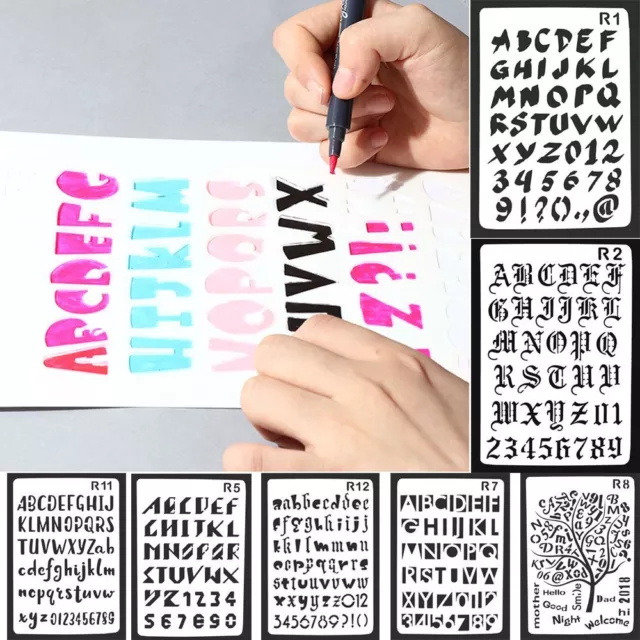 ABCDEFG
HIJKLM
NOPQRS
UVWX
Z?!
R1
ABCDEF
GHIJKL
MNOPQ
RSTUVW
XYZ012
345678
9!?().,@
R2
ABCDEF
GHIJKL
MNOPQ
RSTUV
WXYZ01
23456789
R11
ABCDEFGHIJ
KLMNOPQRS
TUVWXYZab
cdefghijklm
nopqrstuvw
xyz0123456789
R5
ABCDEF
GHIJKL
MNOPQR
STUVWX
YZ1234
567890
R12
aabbccddee
ffgghhiijj
kkllmmnn
ooppqqrr
ssttuuvvww
xxyyzz012
3456789?!()
R7
ABCDEF
GHIJKL
MNOPQ
RSTUVW
XYZ012
3456789
R8
mother
Hello
Good
Night
Smile
Dad
Welcome
hi
2018